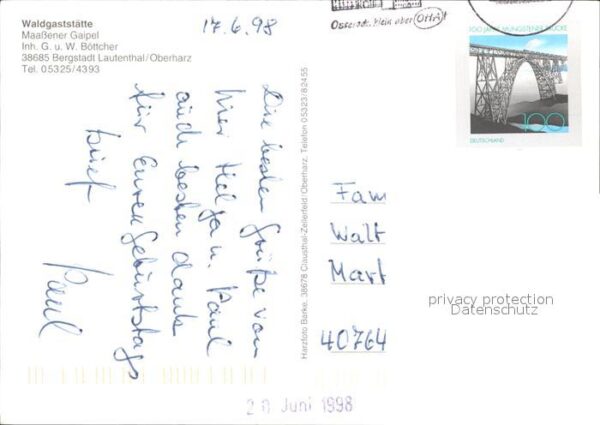 Waldgaststätte
Maaßener Gaipel
Inh. G. u. W. Böttcher
38685 Bergstadt Lautenthal/Oberharz
Tel. 05325/4393
17.6.98
Die besten Grüße von
hier Helga u. Paul
auch besten dank
für Euren Geburtstags
brief
Paul
Harzfoto Barke, 38678 Clausthal-Zellerfeld/Oberharz, Telefon 05323/82455
Klein aber
100 JAHRE MÜNGSTENER BRÜCKE
100
DEUTSCHLAND
Fam
Walt
Mart
40764
privacy protection
Datenschutz
Juni 1998